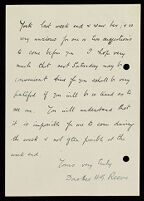 York last week end & saw her, & is
very anxious for me or two suggestions
to come before you. I hope very
much that next Saturday may be
convenient time for you. shall be very
grateful if you will be so kind as to
see me. You will understand that
it is impossible for me to come during
the week & not often possible at the
week end.
Yours very truly